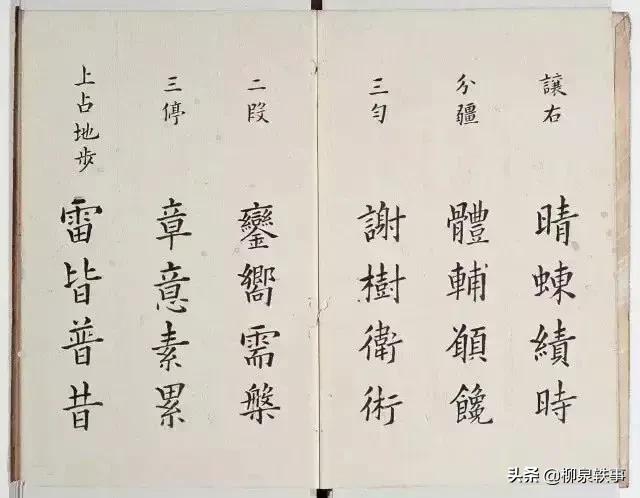 讓右
晴蝀績時
分疆
體輔願饞
三勻
謝樹衛術
二段
鑾嚮需槃
三停
章意素累
上占地步
雷皆普昔
头条 @柳泉轶事